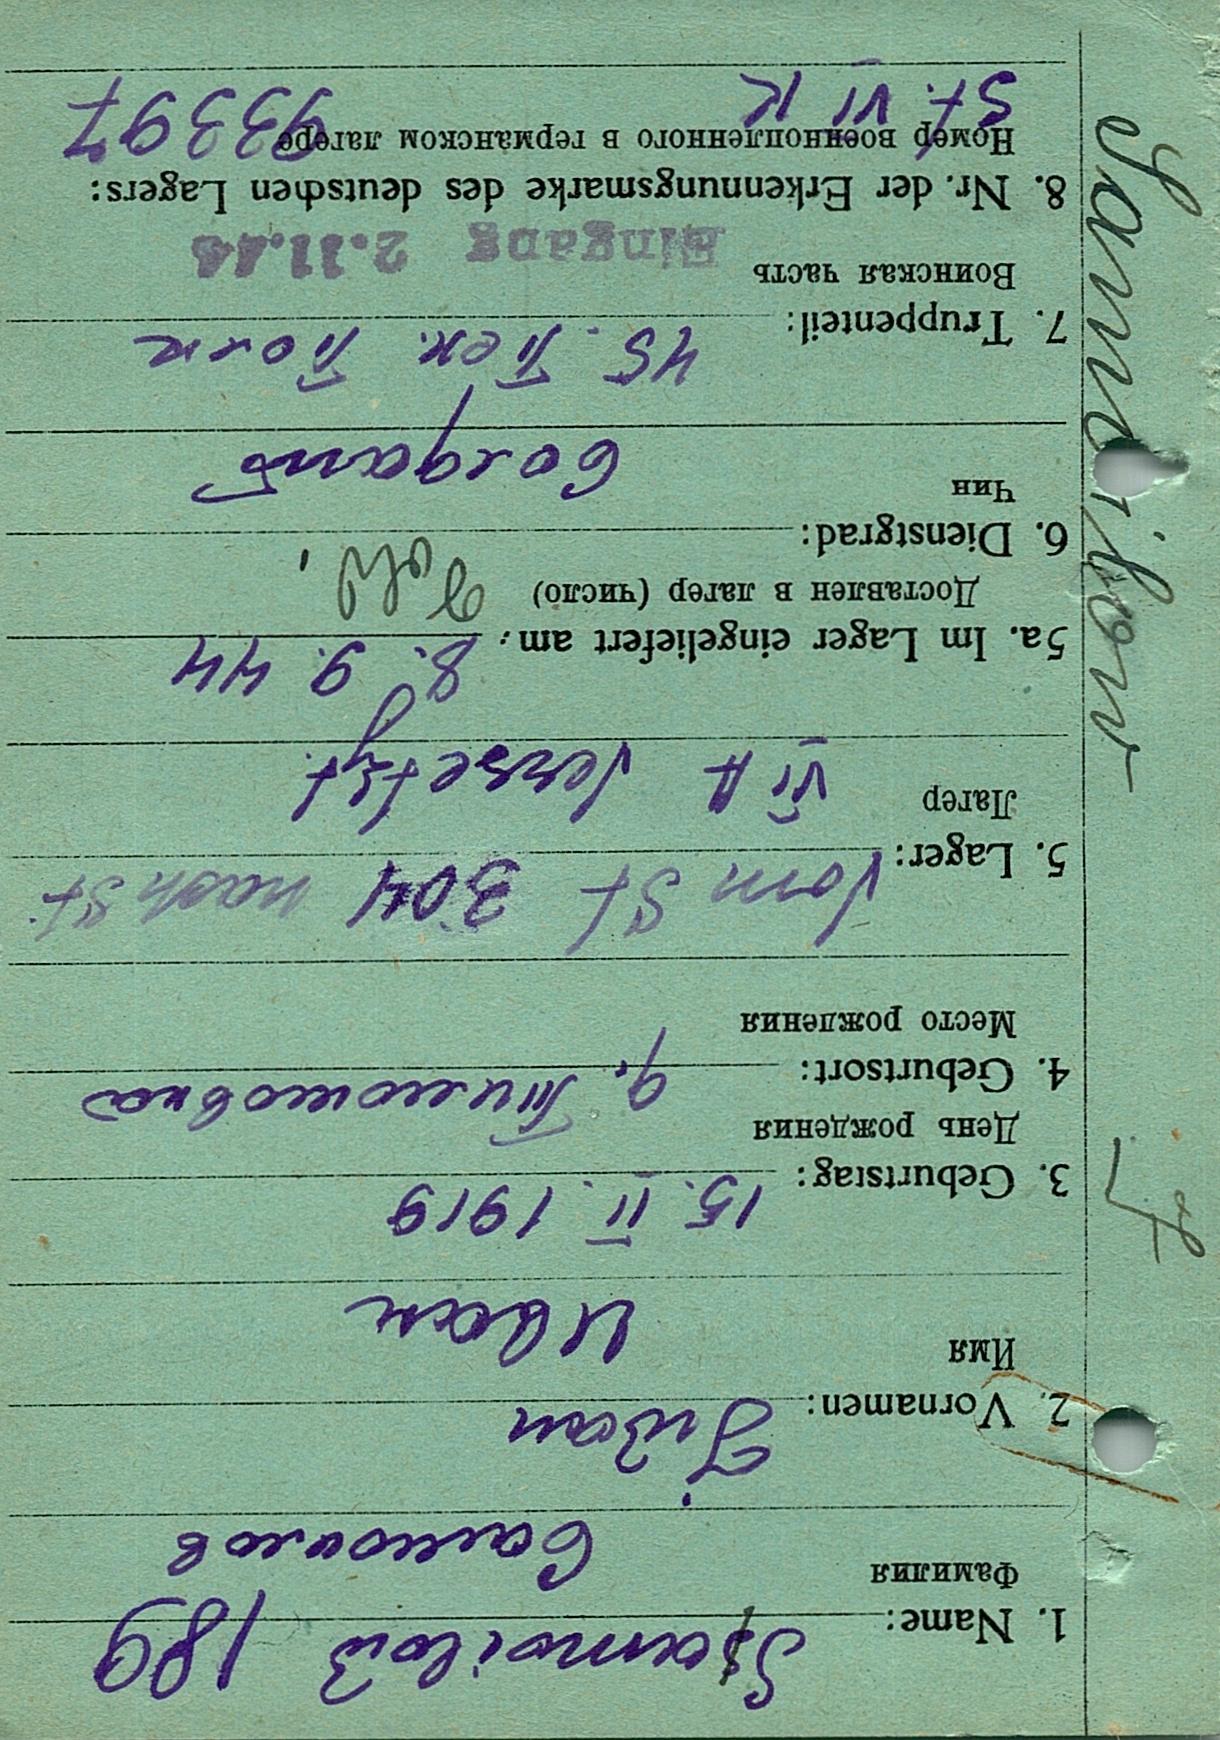 Samoilow
1. Name: Samoilow 189
Фамилия Самойлов
2. Vornamen: Iwan
Имя Иван
3. Geburtstag: 15. II. 1919
День рождения
4. Geburtsort: д. Тимошовка
Место рождения
5. Lager: Vom St 304 nach St.
Лагер VI A versetzt.
5a. Im Lager eingeliefert am: 8. 9. 44
Доставлен в лагер (число)
6. Dienstgrad: Sold.
Чин Солдат
7. Truppenteil: 45. Пех. Полк
Воинская часть
Eingang 2.11.44
8. Nr. der Erkennungsmarke des deutschen Lagers:
Номер военнопленного в германском лагере 93397
St. VI K